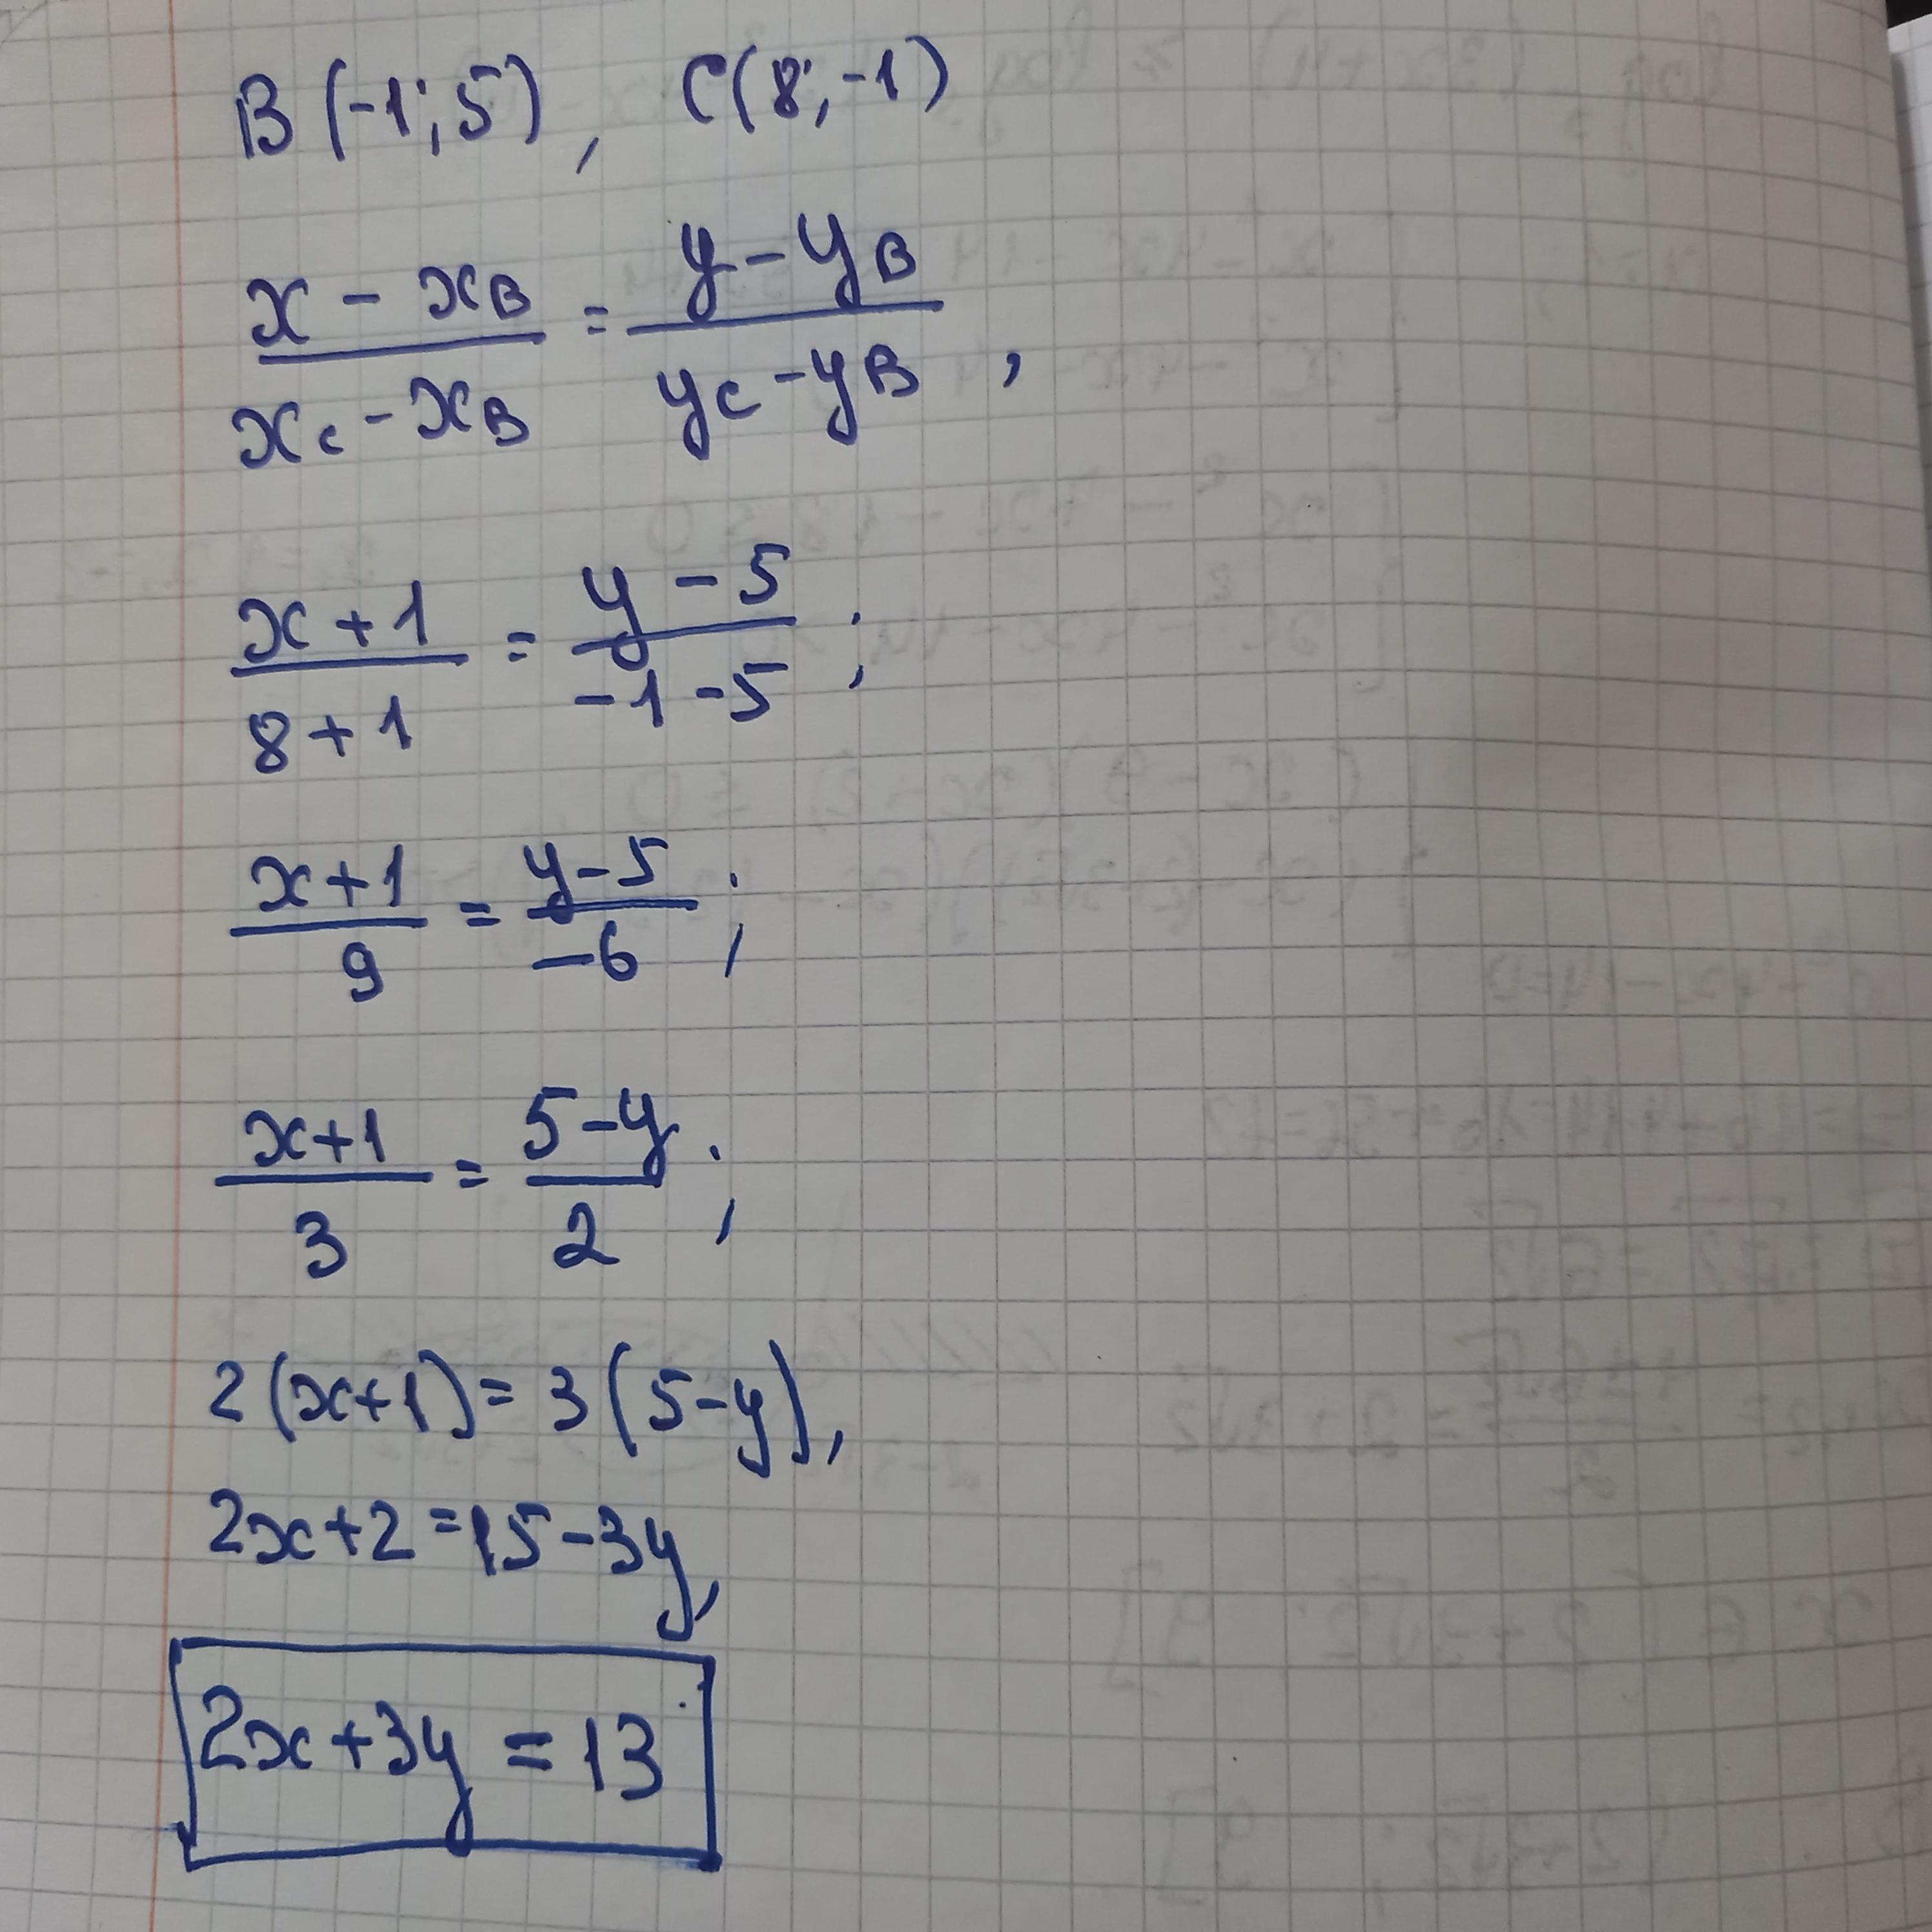 B(-1; 5), C(8; -1)
(x - x_B)/(x_C - x_B) = (y - y_B)/(y_C - y_B),
(x + 1)/(8 + 1) = (y - 5)/(-1 - 5);
(x + 1)/9 = (y - 5)/(-6);
(x + 1)/3 = (5 - y)/2;
2(x + 1) = 3(5 - y),
2x + 2 = 15 - 3y,
2x + 3y = 13